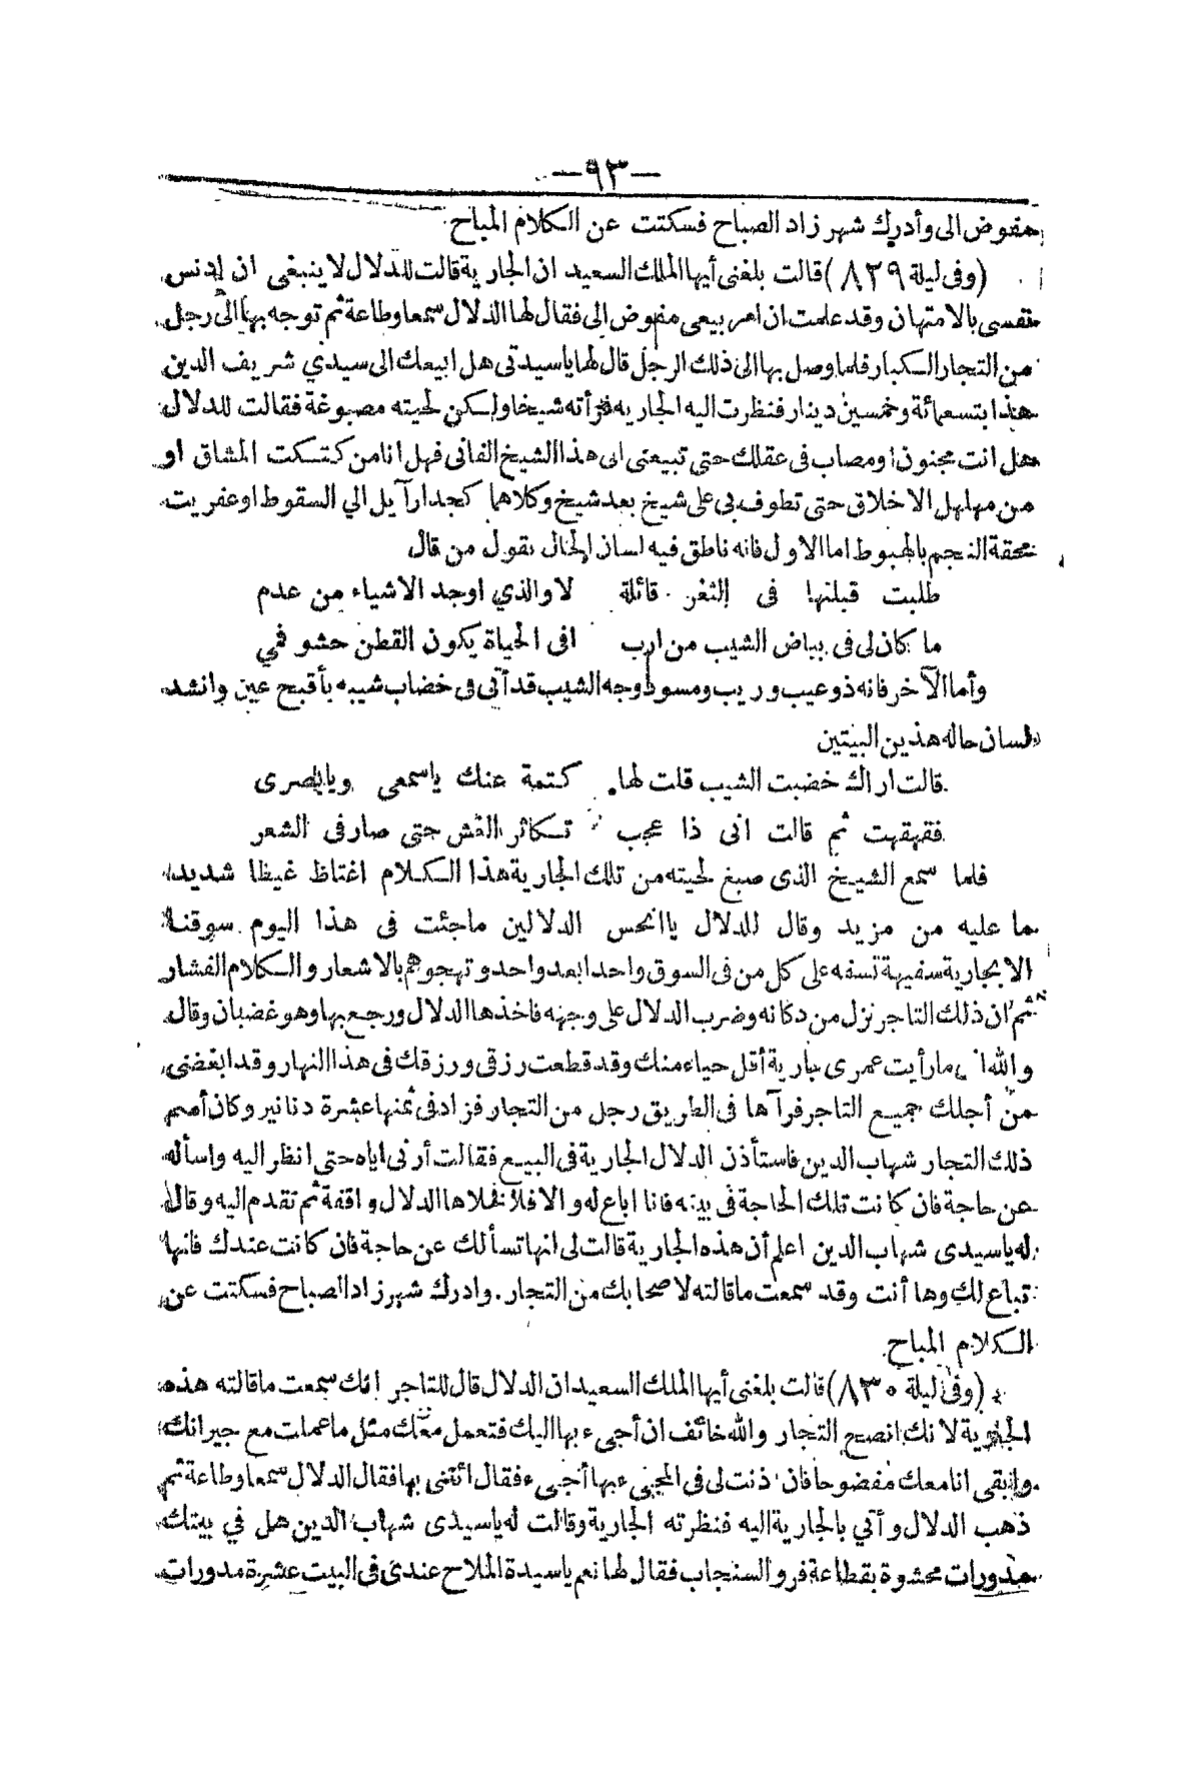 —٩٣—
مفوض الى وأدرك شهر زاد الصباح فسكتت عن الكلام المباح
(وفى ليلة ٨٢٩) قالت بلغنى أيها الملك السعيد ان الجارية قالت للدلال لا ينبغى ان ادنس
نفسى بالامتهان وقد علمت ان امر بيعى مفوض الى فقال لها الدلال سمعا وطاعة ثم توجه بها الى رجل
من التجار الكبار فلما وصل بها الى ذلك الرجل قال لها ياسيدتى هل ابيعك الى سيدي شريف الدين
هذا بتسعمائة وخمسين دينار فنظرت اليه الجارية فرأته شيخا ولكن لحيته مصبوغة فقالت للدلال
هل انت مجنون او مصاب فى عقلك حتى تبيعنى الى هذا الشيخ الفانى فهل انا من كتكت المشاق او
من مهلهل الاخلاق حتى تطوف بى على شيخ بعد شيخ وكلاهما كجدار آيل الي السقوط او عفريت
محقة النجم بالهبوط اما الاول فانه ناطق فيه لسان الحال بقول من قال
طلبت قبلتها فى الثغر قائلة لا والذي اوجد الاشياء من عدم
ما كان لى فى بياض الشيب من ارب افى الحياة يكون القطن حشو فمي
وأما الآخر فانه ذو عيب وريب ومسود وجه الشيب قد أتى فى خضاب شيبه بأقبح عين وانشد
لسان حاله هذين البيتين
قالت اراك خضبت الشيب قلت لها كتمة عنك ياسمعى ويابصرى
فقهقهت ثم قالت انى ذا عجب تكاثر الغش حتى صار فى الشعر
فلما سمع الشيخ الذى صبغ لحيته من تلك الجارية هذا الكلام اغتاظ غيظا شديدا
ما عليه من مزيد وقال للدلال ياانحس الدلالين ماجئت فى هذا اليوم سوقنا
الا بجارية سفيهة تسفه على كل من فى السوق واحدا بعد واحد وتهجوهم بالاشعار والكلام الفشار
ثم ان ذلك التاجر نزل من دكانه وضرب الدلال على وجهه فاخذها الدلال ورجع بها وهو غضبان وقال
والله انى مارأيت عمرى جارية أقل حياء منك وقد قطعت رزقى ورزقك فى هذا النهار وقد ابغضنى
من أجلك جميع التاجر فرآها فى الطريق رجل من التجار فزاد فى ثمنها عشرة دنانير وكان أسم
ذلك التجار شهاب الدين فاستأذن الدلال الجارية فى البيع فقالت أرنى اياه حتى انظر اليه واسأله
عن حاجة فان كانت تلك الحاجة فى بيته فانا اباع له والا فلا فخلاها الدلال واقفة ثم تقدم اليه وقال
له ياسيدى شهاب الدين اعلم أن هذه الجارية قالت لى انها تسألك عن حاجة فان كانت عندك فانها
تباع لك وها أنت وقد سمعت ماقالته لاصحابك من التجار. وادرك شهرزاد الصباح فسكتت عن
الكلام المباح
(وفى ليلة ٨٣٠) قالت بلغنى أيها الملك السعيد ان الدلال قال للتاجر انك سمعت ماقالته هذه
الجارية لانك انصح التجار والله خائف ان أجىء بها اليك فتعمل معك مثل ما عملت مع جيرانك
وابقى انا معك مفضوحا فان اذنت لى فى المجىء بها أجىء فقال ائتنى بها فقال الدلال سمعا وطاعة ثم
ذهب الدلال وأتي بالجارية اليه فنظرته الجارية وقالت له ياسيدى شهاب الدين هل في بيتك
مدورات محشوة بقطاعة فرو السنجاب فقال لها نعم ياسيدة الملاح عندى فى البيت عشرة مدورات